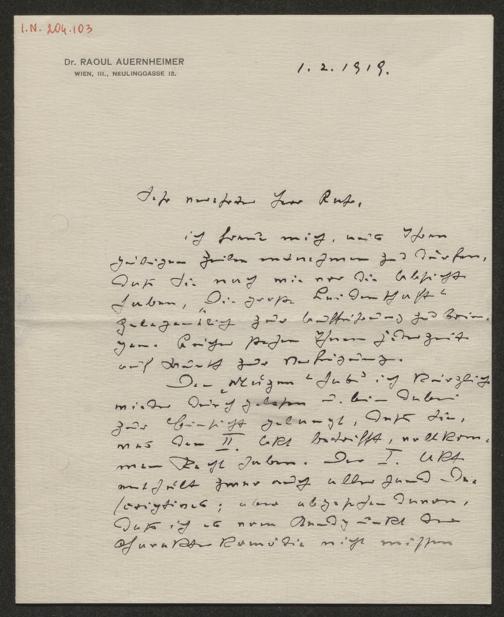 I.N. 204.103
Dr. RAOUL AUERNHEIMER
WIEN, III., NEULINGGASSE 13.
1.2.1919.
Sehr verehrter Herr
ich freue mich, aus Ihren
gütigen Zeilen entnehmen zu dürfen,
daß Sie nach wie vor die Absicht
haben, „Die große Leidenschaft“
gelegentlich zur Aufführung zu brin-
gen. Bücher stehen Ihnen jederzeit
auf Wunsch zur Verfügung.
Den „ “ hab' ich kürzlich
wieder durchgelesen u. bin dabei
zur Einsicht gelangt, daß Sie,
was den II. Akt betrifft, vollkom-
men Recht haben. Der I. Akt
enthält zwar auch allerhand
; aber abgesehen davon,
daß ich es vom Standpunkt der
Charakterkomödie nicht missen